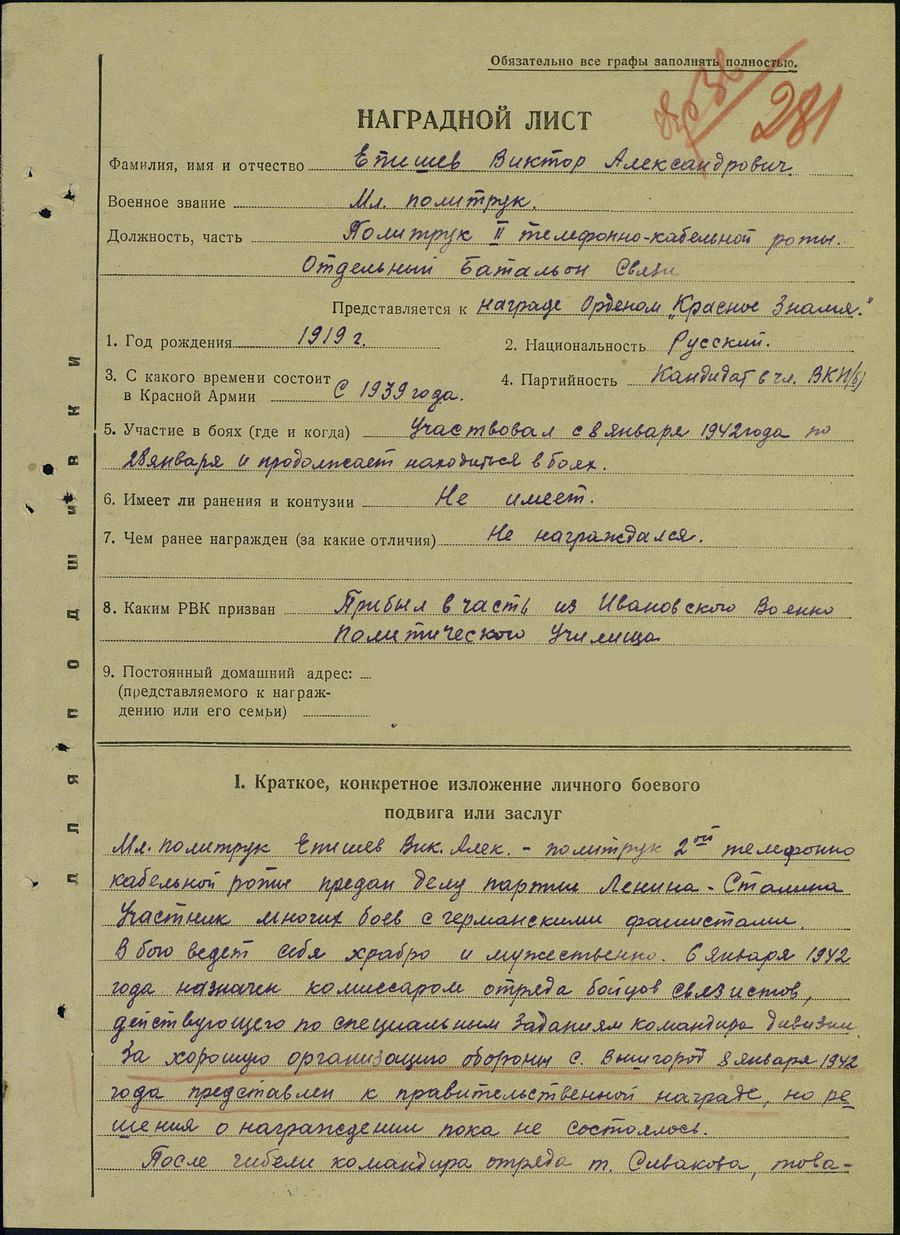 Обязательно все графы заполнять полностью.
281
НАГРАДНОЙ ЛИСТ
Фамилия, имя и отчество Епишев Виктор Александрович
Военное звание Мл. политрук.
Должность, часть Политрук II телефонно-кабельной роты.
Отдельный Батальон Связи
Представляется к награде Орденом „Красное Знамя."
1. Год рождения 1919 г. 2. Национальность Русский.
3. С какого времени состоит в Красной Армии С 1939 года. 4. Партийность Кандидат в чл. ВКП/б/
5. Участие в боях (где и когда) Участвовал с 8 января 1942 года по
28 января и продолжает находиться в боях.
6. Имеет ли ранения и контузии Не имеет.
7. Чем ранее награжден (за какие отличия) Не награждался.
8. Каким РВК призван Прибыл в часть из Ивановского Военно
политического Училища
9. Постоянный домашний адрес:
(представляемого к награж-
дению или его семьи)
ДЛЯ ПОДШИВКИ
I. Краткое, конкретное изложение личного боевого
подвига или заслуг
Мл. политрук Епишев Вик. Алек. - политрук 2ой телефонно
кабельной роты предан делу партии Ленина - Сталина
Участник многих боев с германскими фашистами.
В бою ведет себя храбро и мужественно. 6 января 1942
года назначен комиссаром отряда бойцов связистов,
действующего по специальным заданиям командира дивизии.
За хорошую организацию обороны с. Вышгород 8 января 1942
года представлен к правительственной награде, но ре-
шения о награждении пока не состоялось.
После гибели командира отряда т. Сивакова, това-